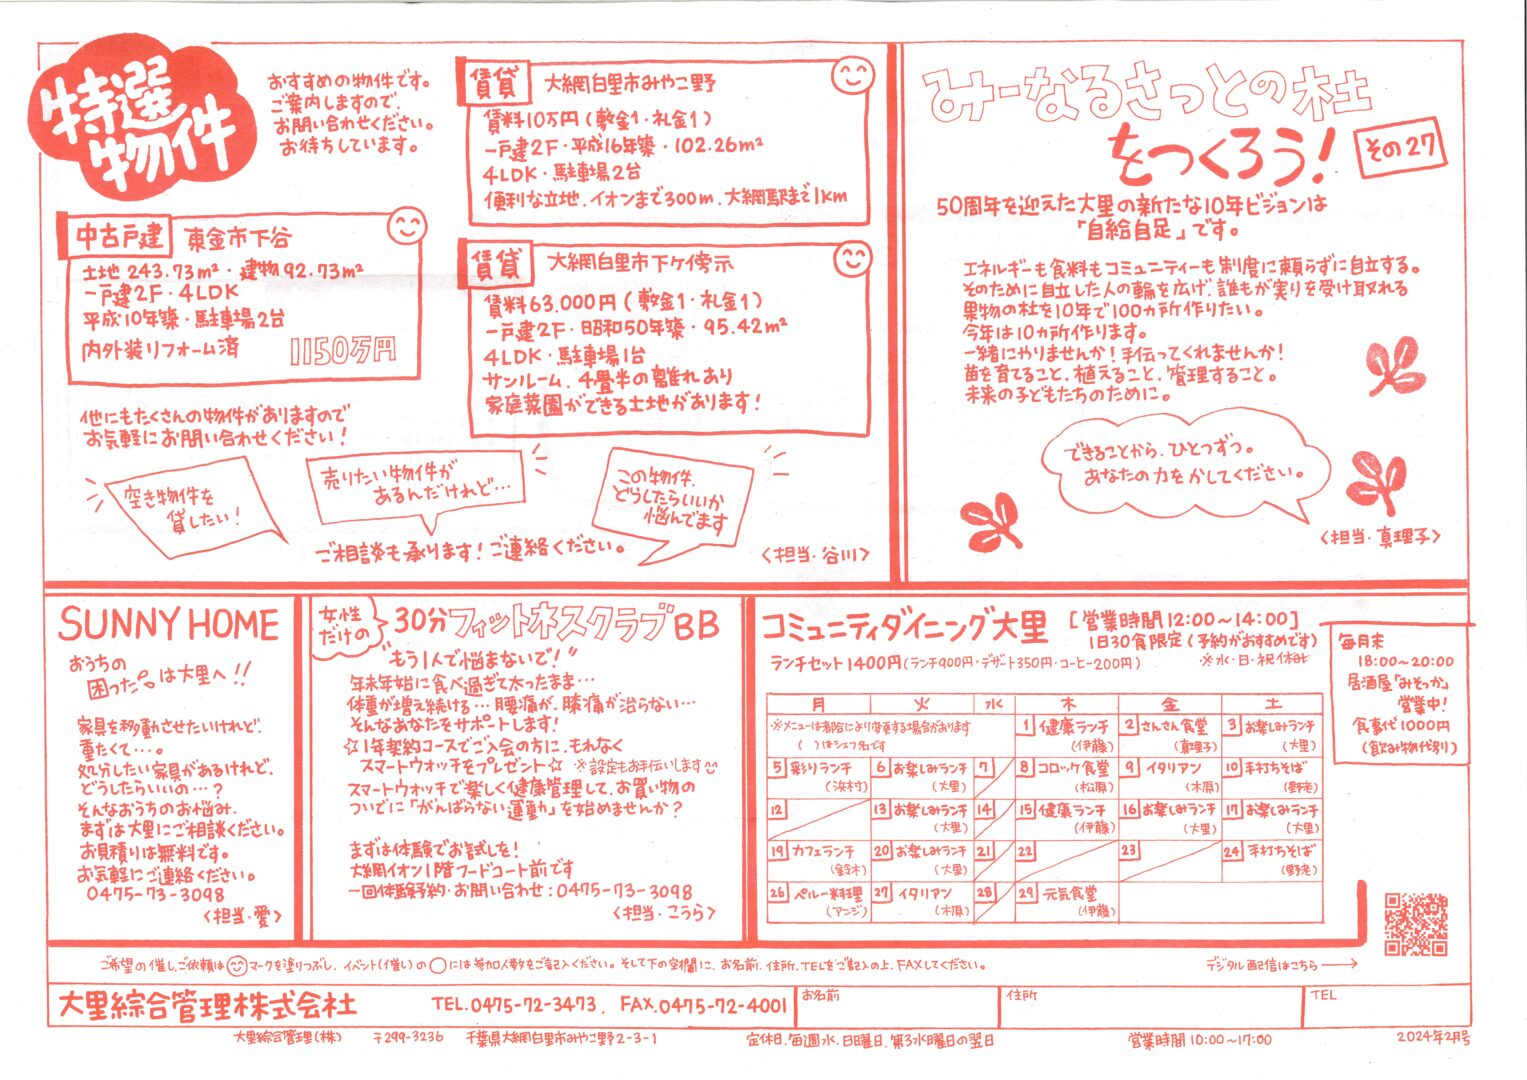 特選
物件
おすすめの物件です。
ご案内しますので、
お問い合わせください。
お待ちしています。
中古戸建 東金市下谷
土地 243.73m²・建物92.73m²
一戸建2F・4LDK
平成10年築・駐車場2台
内外装リフォーム済 1150万円
賃貸 大網白里市みやこ野
賃料10万円(敷金1・礼金1)
一戸建2F・平成16年築・102.26m²
4LDK・駐車場2台
便利な立地、イオンまで300m、大網駅まで1km
賃貸 大網白里市下ケ傍示
賃料63,000円(敷金1・礼金1)
一戸建2F・昭和50年築・95.42m²
4LDK・駐車場1台
サンルーム、4畳半の離れあり
家庭菜園ができる土地があります!
他にもたくさんの物件がありますので
お気軽にお問い合わせください!
空き物件を
貸したい!
売りたい物件が
あるんだけれど…
この物件、
どうしたらいいか
悩んでます
ご相談も承ります!ご連絡ください。
〈担当・谷川〉
みーなるさっとの杜
をつくろう!
その27
50周年を迎えた大里の新たな10年ビジョンは
「自給自足」です。
エネルギーも食料もコミュニティーも制度に頼らずに自立する。
そのために自立した人の輪を広げ、誰もが実りを受け取れる
果物の杜を10年で100カ所作りたい。
今年は10カ所作ります。
一緒にやりませんか!手伝ってくれませんか!
苗を育てること、植えること、管理すること。
未来の子どもたちのために。
できることから、ひとつずつ。
あなたの力をかしてください。
〈担当・真理子〉
SUNNY HOME
おうちの
困ったは大里へ!!
家具を移動させたいけれど、
重たくて…。
処分したい家具があるけれど、
どうしたらいいの…?
そんなおうちのお悩み、
まずは大里にご相談ください。
お見積りは無料です。
お気軽にご連絡ください。
0475-73-3098
〈担当・愛〉
女性
だけの
30分フィットネスクラブBB
"もう1人で悩まないで!"
年末年始に食べ過ぎて太ったまま…
体重が増え続ける…腰痛が、膝痛が治らない…
そんなあなたをサポートします!
☆1年契約コースでご入会の方に、もれなく
スマートウォッチをプレゼント☆ ※設定もお手伝いします
スマートウォッチで楽しく健康管理して、お買い物の
ついでに「がんばらない運動」を始めませんか?
まずは体験でお試しを!
大網イオン1階フードコート前です
一回体験予約・お問い合わせ:0475-73-3098
〈担当・こうら〉
コミュニティダイニング大里 [営業時間12:00〜14:00]
1日30食限定(予約がおすすめです)
ランチセット1400円(ランチ900円・デザート350円・コーヒー200円) ※水・日・祝休み
月 火 水 木 金 土
※メニューは都合により変更する場合があります
( )はシェフ名です
1 健康ランチ (伊藤) 2 さんさん食堂 (真理子) 3 お楽しみランチ (大里)
5 彩りランチ (浜村) 6 お楽しみランチ (大里) 7 8 コロッケ食堂 (松原) 9 イタリアン (木原) 10 手打ちそば (野老)
12 13 お楽しみランチ (大里) 14 15 健康ランチ (伊藤) 16 お楽しみランチ (大里) 17 お楽しみランチ (大里)
19 カフェランチ (鈴木) 20 お楽しみランチ (大里) 21 22 23 24 手打ちそば (野老)
26 ペルー料理 (アンジ) 27 イタリアン (木原) 28 29 元気食堂 (伊藤)
毎月末
18:00〜20:00
居酒屋「みそっか」
営業中!
食事代1000円
(飲み物代別)
ご希望の催し、ご依頼はマークを塗りつぶし、イベント(催し)の○には参加人数をご記入ください。そして下の空欄に、お名前、住所、TELをご記入の上、FAXしてください。
デジタル配信はこちら→
大里綜合管理株式会社 TEL.0475-72-3473. FAX.0475-72-4001
お名前 住所 TEL
大里綜合管理(株) 〒299-3236 千葉県大網白里市みやこ野2-3-1 定休日、毎週水、日曜日、第3水曜日の翌日 営業時間10:00〜17:00 2024年2月号